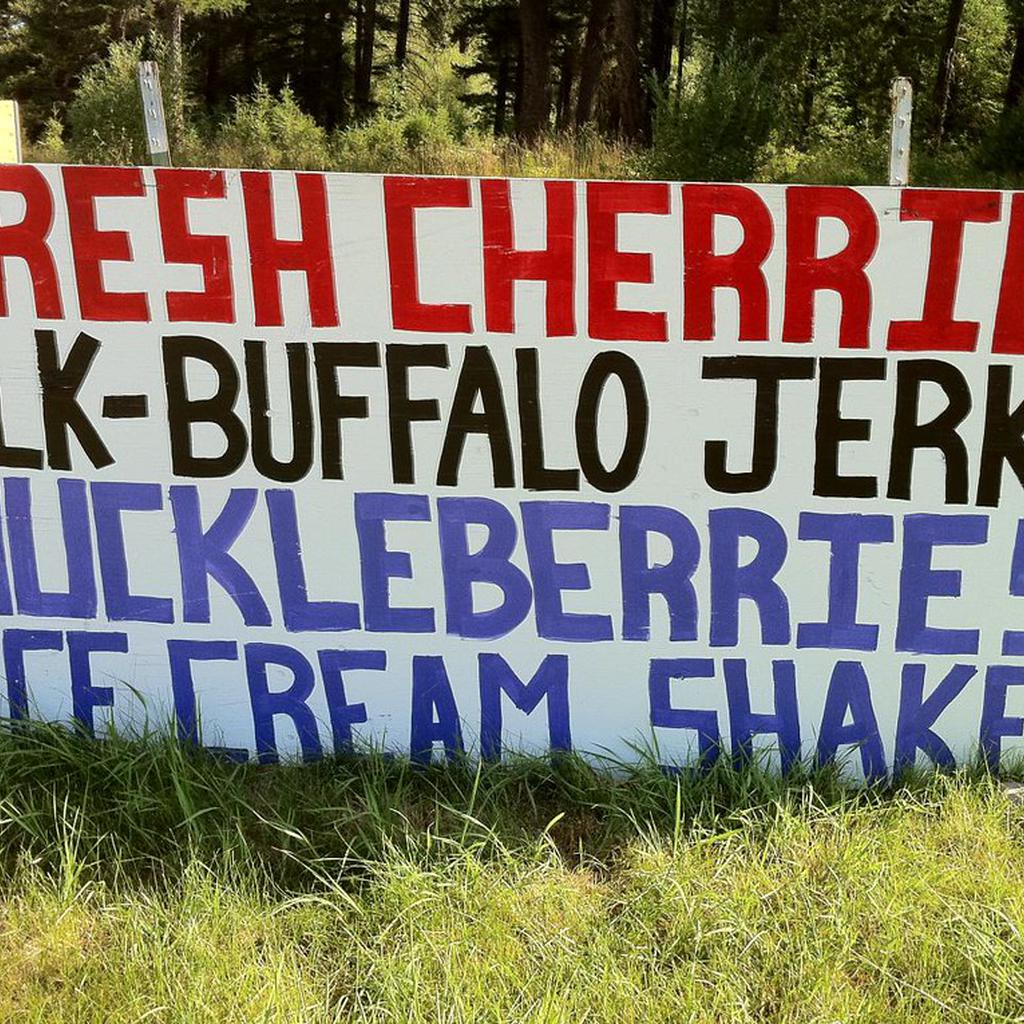 RESH CHERRIE
LK-BUFFALO JERK
HUCKLEBERRIES
ICE CREAM SHAKE